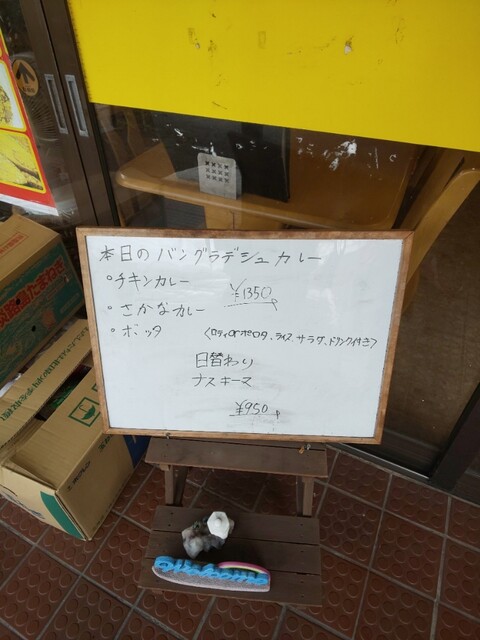 本日のバングラデシュカレー
・チキンカレー
¥1350
・さかなカレー
・ボッタ
〈ロティorポロタ、ライス、サラダ、ドリンク付き〉
日替わり
ナスキーマ
¥950